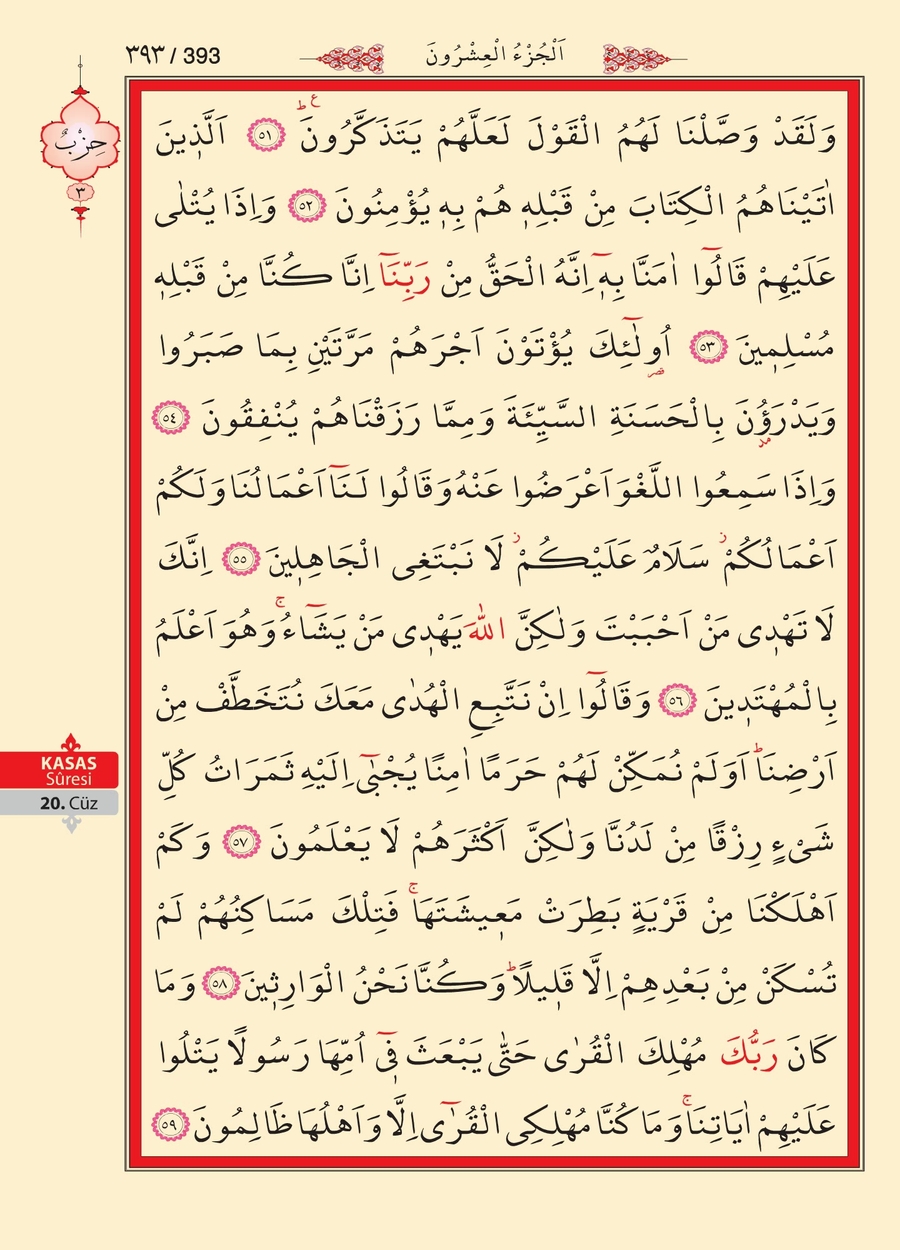 ٣٩٣ / 393
اَلْجُزْءُ الْعِشْرُونَ
حِزْبٌ
٣
وَلَقَدْ وَصَّلْنَا لَهُمُ الْقَوْلَ لَعَلَّهُمْ يَتَذَكَّرُونَ ٥١ اَلَّذ۪ينَ
اٰتَيْنَاهُمُ الْكِتَابَ مِنْ قَبْلِه۪ هُمْ بِه۪ يُؤْمِنُونَ ٥٢ وَاِذَا يُتْلٰى
عَلَيْهِمْ قَالُٓوا اٰمَنَّا بِه۪ٓ اِنَّهُ الْحَقُّ مِنْ رَبِّنَٓا اِنَّا كُنَّا مِنْ قَبْلِه۪
مُسْلِم۪ينَ ٥٣ اُو۬لٰٓئِكَ يُؤْتَوْنَ اَجْرَهُمْ مَرَّتَيْنِ بِمَا صَبَرُوا
وَيَدْرَؤُ۫نَ بِالْحَسَنَةِ السَّيِّئَةَ وَمِمَّا رَزَقْنَاهُمْ يُنْفِقُونَ ٥٤
وَاِذَا سَمِعُوا اللَّغْوَ اَعْرَضُوا عَنْهُ وَقَالُوا لَنَٓا اَعْمَالُنَا وَلَكُمْ
اَعْمَالُكُمْۘ سَلَامٌ عَلَيْكُمْۘ لَا نَبْتَغِى الْجَاهِل۪ينَ ٥٥ اِنَّكَ
لَا تَهْد۪ى مَنْ اَحْبَبْتَ وَلٰكِنَّ اللّٰهَ يَهْد۪ى مَنْ يَشَٓاءُۚ وَهُوَ اَعْلَمُ
بِالْمُهْتَد۪ينَ ٥٦ وَقَالُٓوا اِنْ نَتَّبِعِ الْهُدٰى مَعَكَ نُتَخَطَّفْ مِنْ
اَرْضِنَاۜ اَوَلَمْ نُمَكِّنْ لَهُمْ حَرَمًا اٰمِنًا يُجْبٰٓى اِلَيْهِ ثَمَرَاتُ كُلِّ
شَىْءٍ رِزْقًا مِنْ لَدُنَّا وَلٰكِنَّ اَكْثَرَهُمْ لَا يَعْلَمُونَ ٥٧ وَكَمْ
اَهْلَكْنَا مِنْ قَرْيَةٍ بَطِرَتْ مَع۪يشَتَهَاۚ فَتِلْكَ مَسَاكِنُهُمْ لَمْ
تُسْكَنْ مِنْ بَعْدِهِمْ اِلَّا قَل۪يلًاۜ وَكُنَّا نَحْنُ الْوَارِث۪ينَ ٥٨ وَمَا
كَانَ رَبُّكَ مُهْلِكَ الْقُرٰى حَتّٰى يَبْعَثَ ف۪ٓى اُمِّهَا رَسُولًا يَتْلُوا
عَلَيْهِمْ اٰيَاتِنَاۚ وَمَا كُنَّا مُهْلِكِى الْقُرٰٓى اِلَّا وَاَهْلُهَا ظَالِمُونَ ٥٩
KASAS
Sûresi
20. Cüz